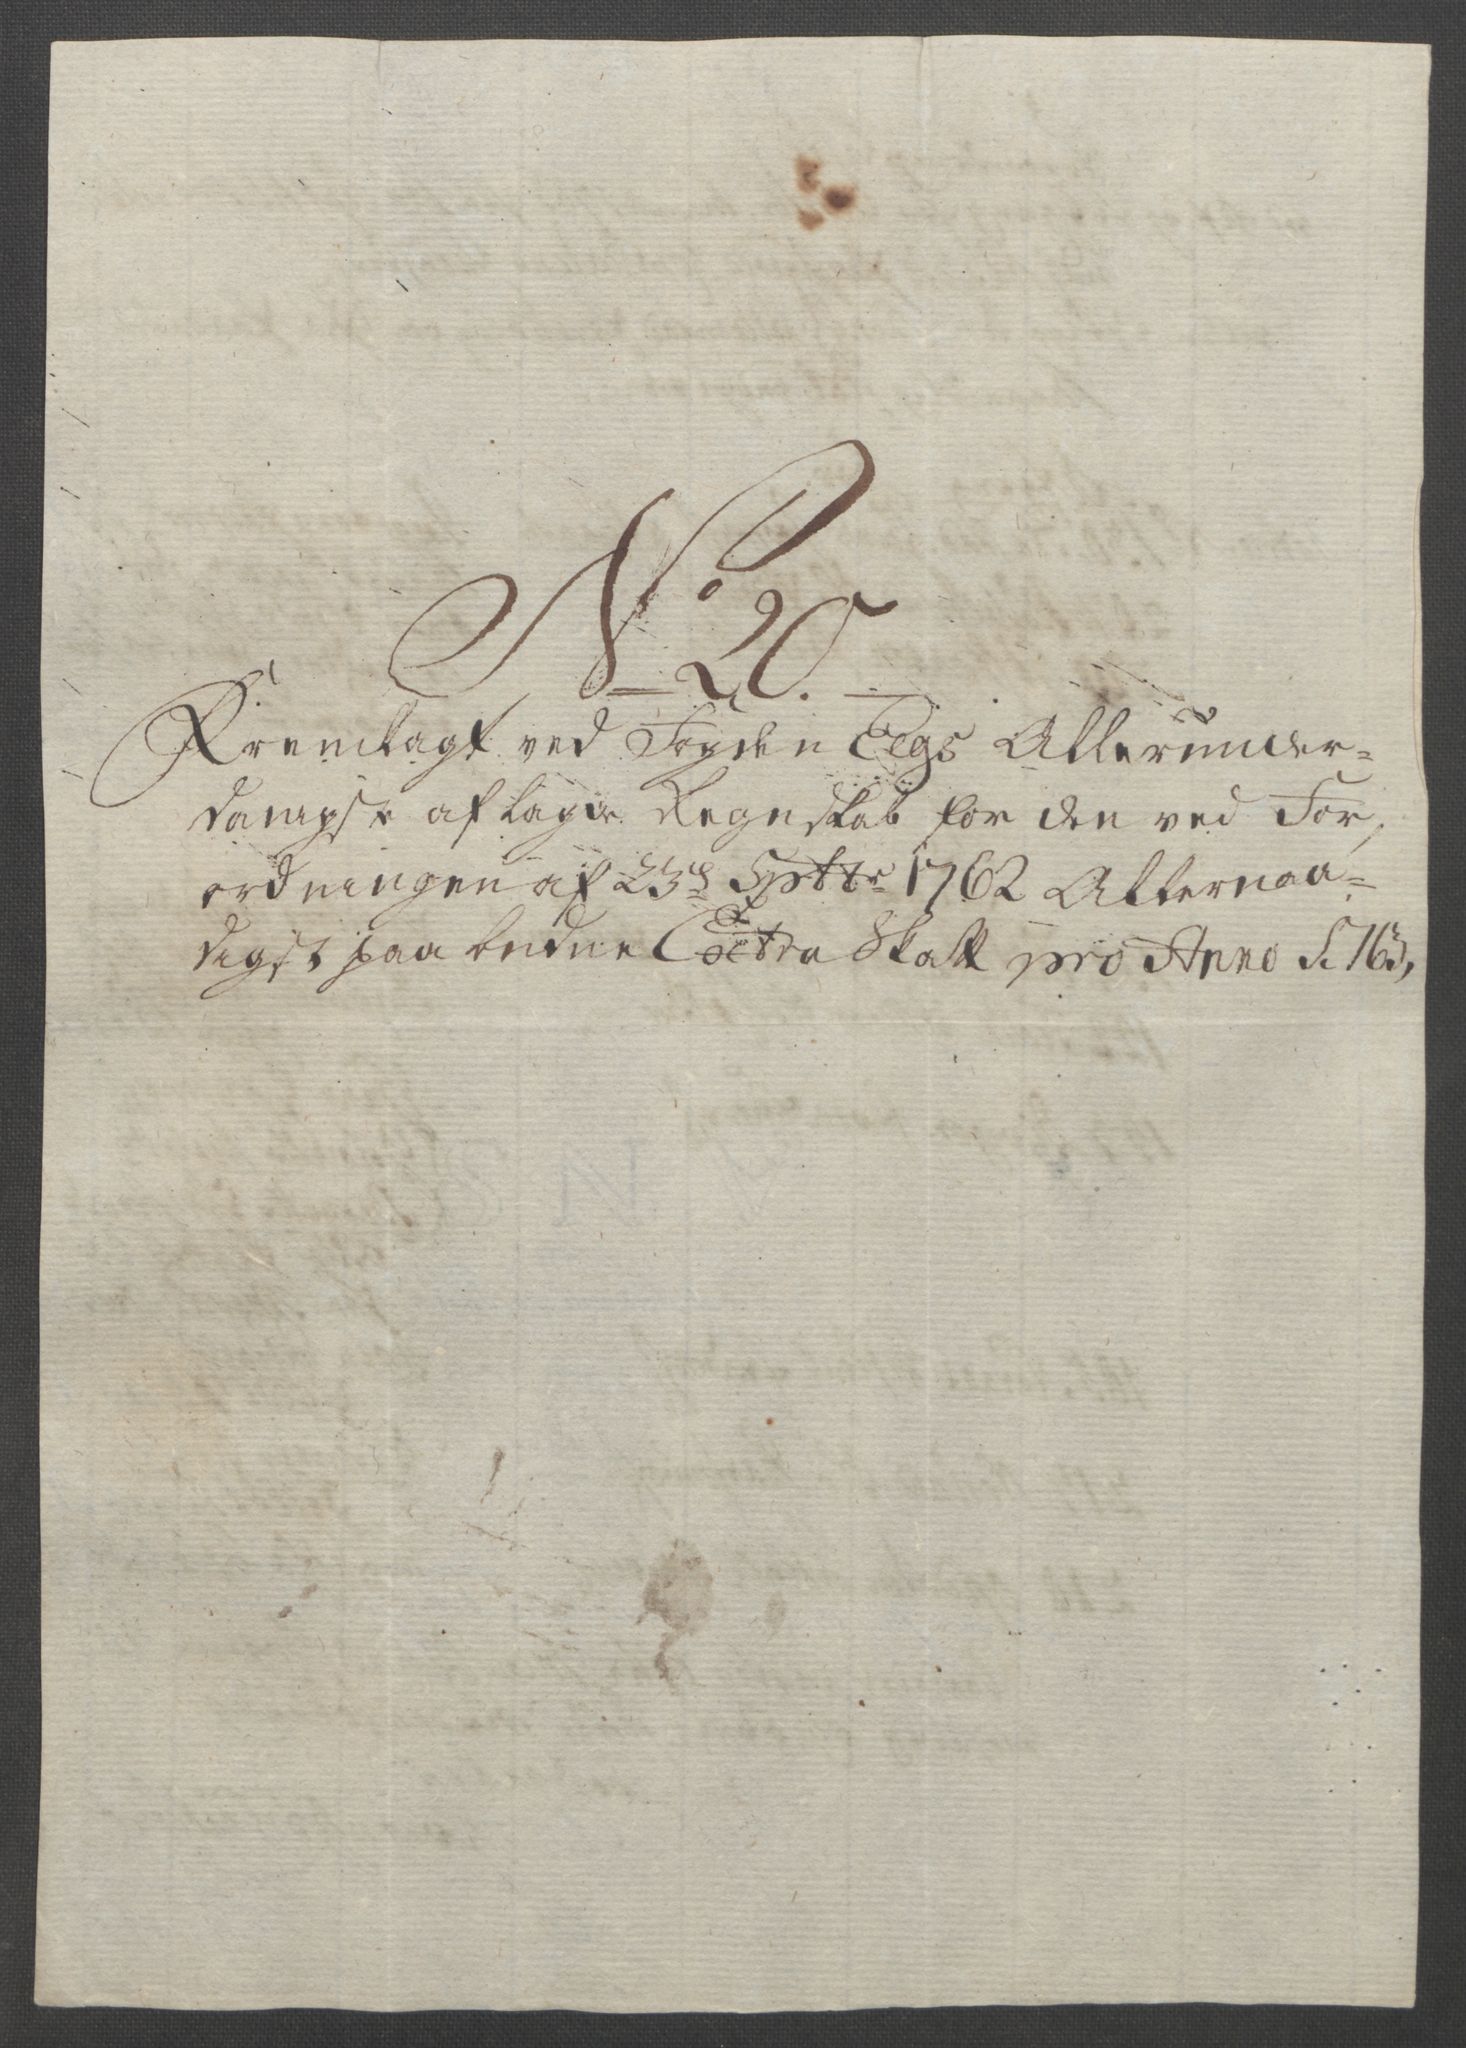 No 20.
Fremlagt ved Fogden Eegs Allerunder-
danigste aflagde Regnskab for den ved For,
ordningen af 23de Septbr 1762 Allernaa-
digst paa budne Extra Skatt pro Anno 1763,